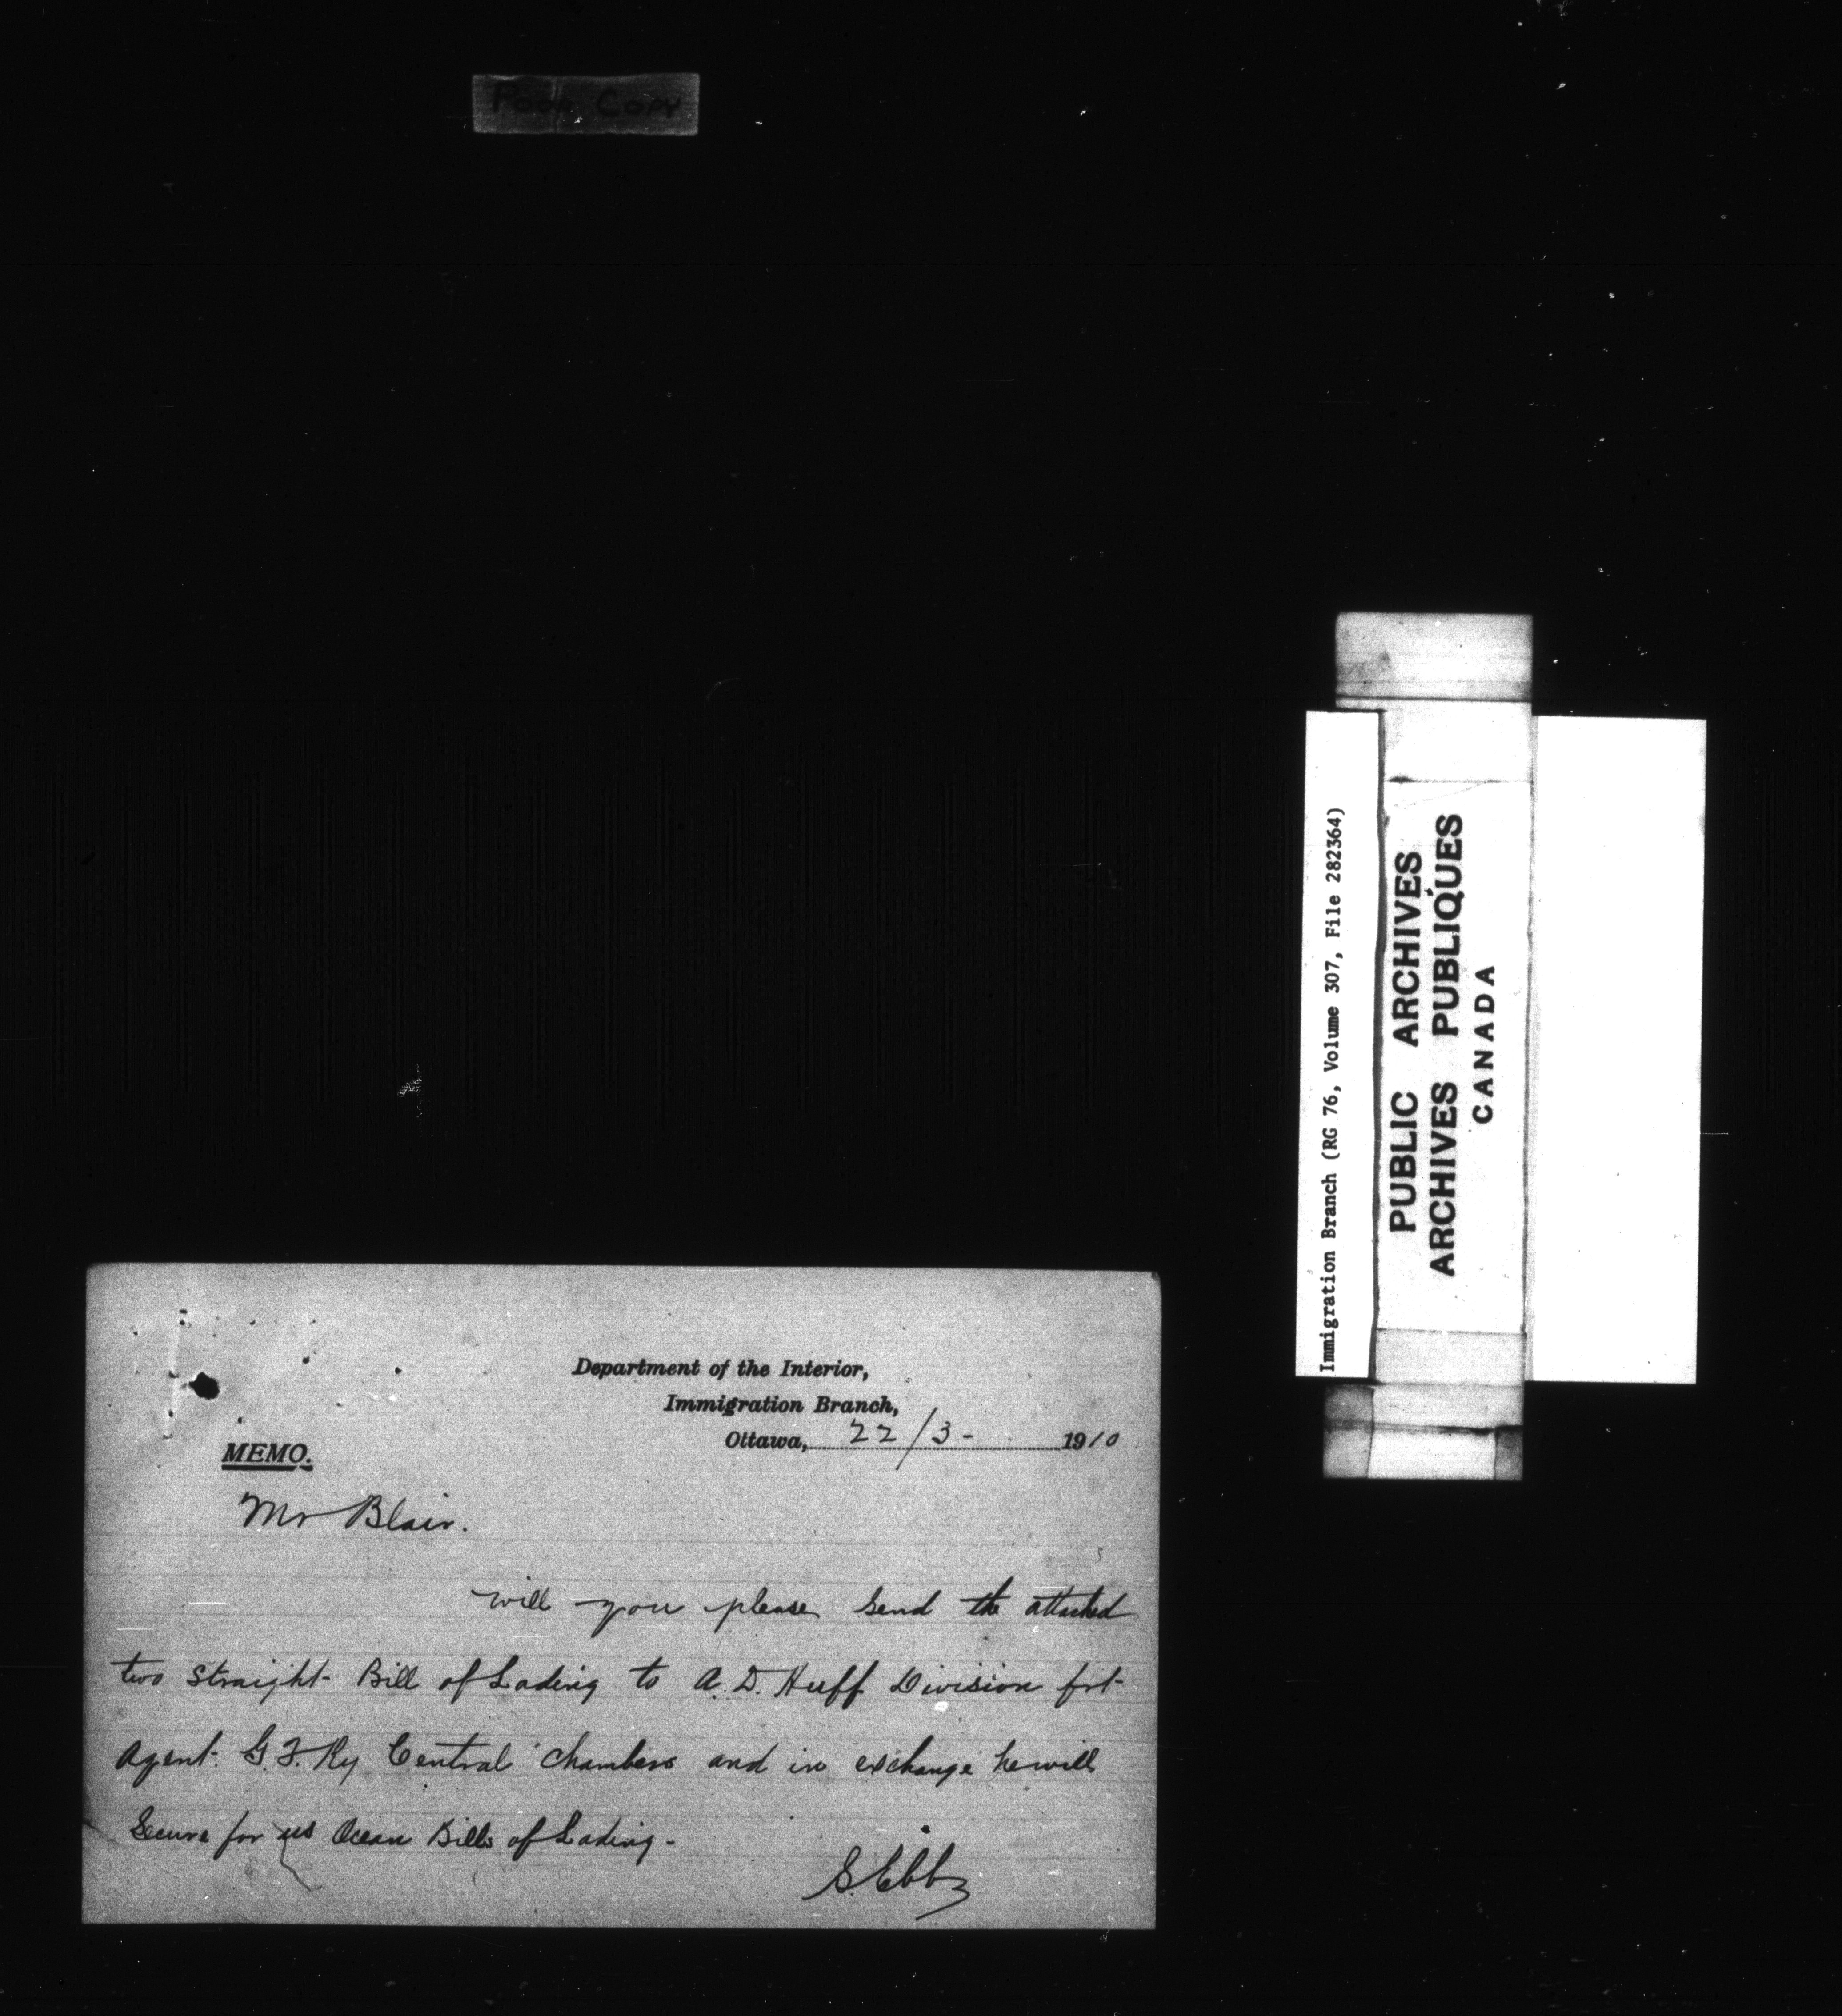 Poor Copy
Department of the Interior,
Immigration Branch,
Ottawa, 22/3- 1910
MEMO.
Mr Blair.
will you please send the attached
two straight Bill of Lading to A. D. Huff Division frt
Agent. G. T. Ry Central Chambers and in exchange he will
secure for us Ocean Bills of Lading -
Immigration Branch (RG 76, Volume 307, File 282364)
PUBLIC ARCHIVES
ARCHIVES PUBLIQUES
CANADA